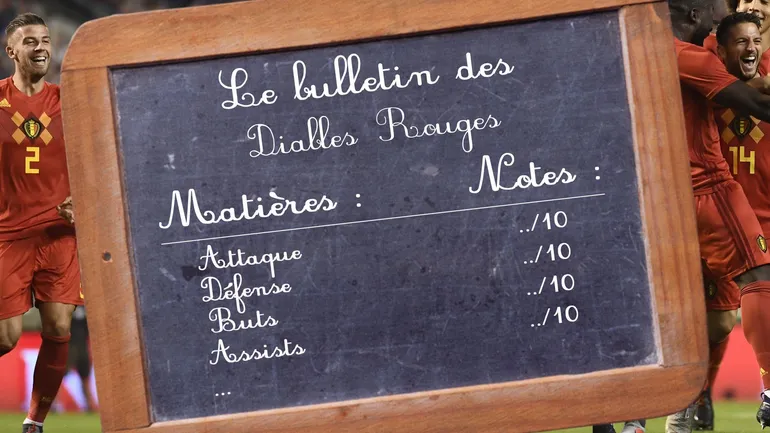 Le bulletin des
Dialles Rouges
Matières : Notes :
Attaque ../10
Défense ../10
Buts ../10
Assists ../10
...
2
14